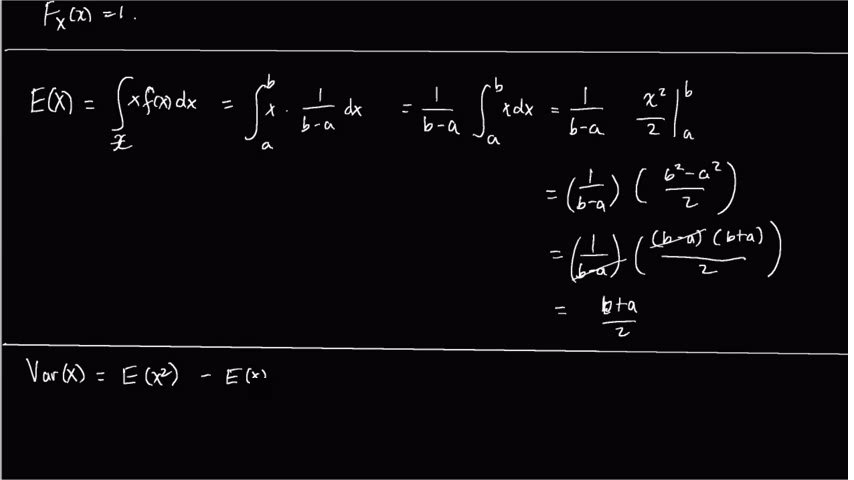 F_X(x) = 1.
E(X) = ∫_𝒳 x f(x) dx = ∫_a^b x · 1/(b-a) dx = 1/(b-a) ∫_a^b x dx = 1/(b-a) x²/2 |_a^b
= (1/(b-a)) ((b²-a²)/2)
= (1/(b-a)) ((b-a)(b+a)/2)
= (b+a)/2
Var(X) = E(X²) - E(X)